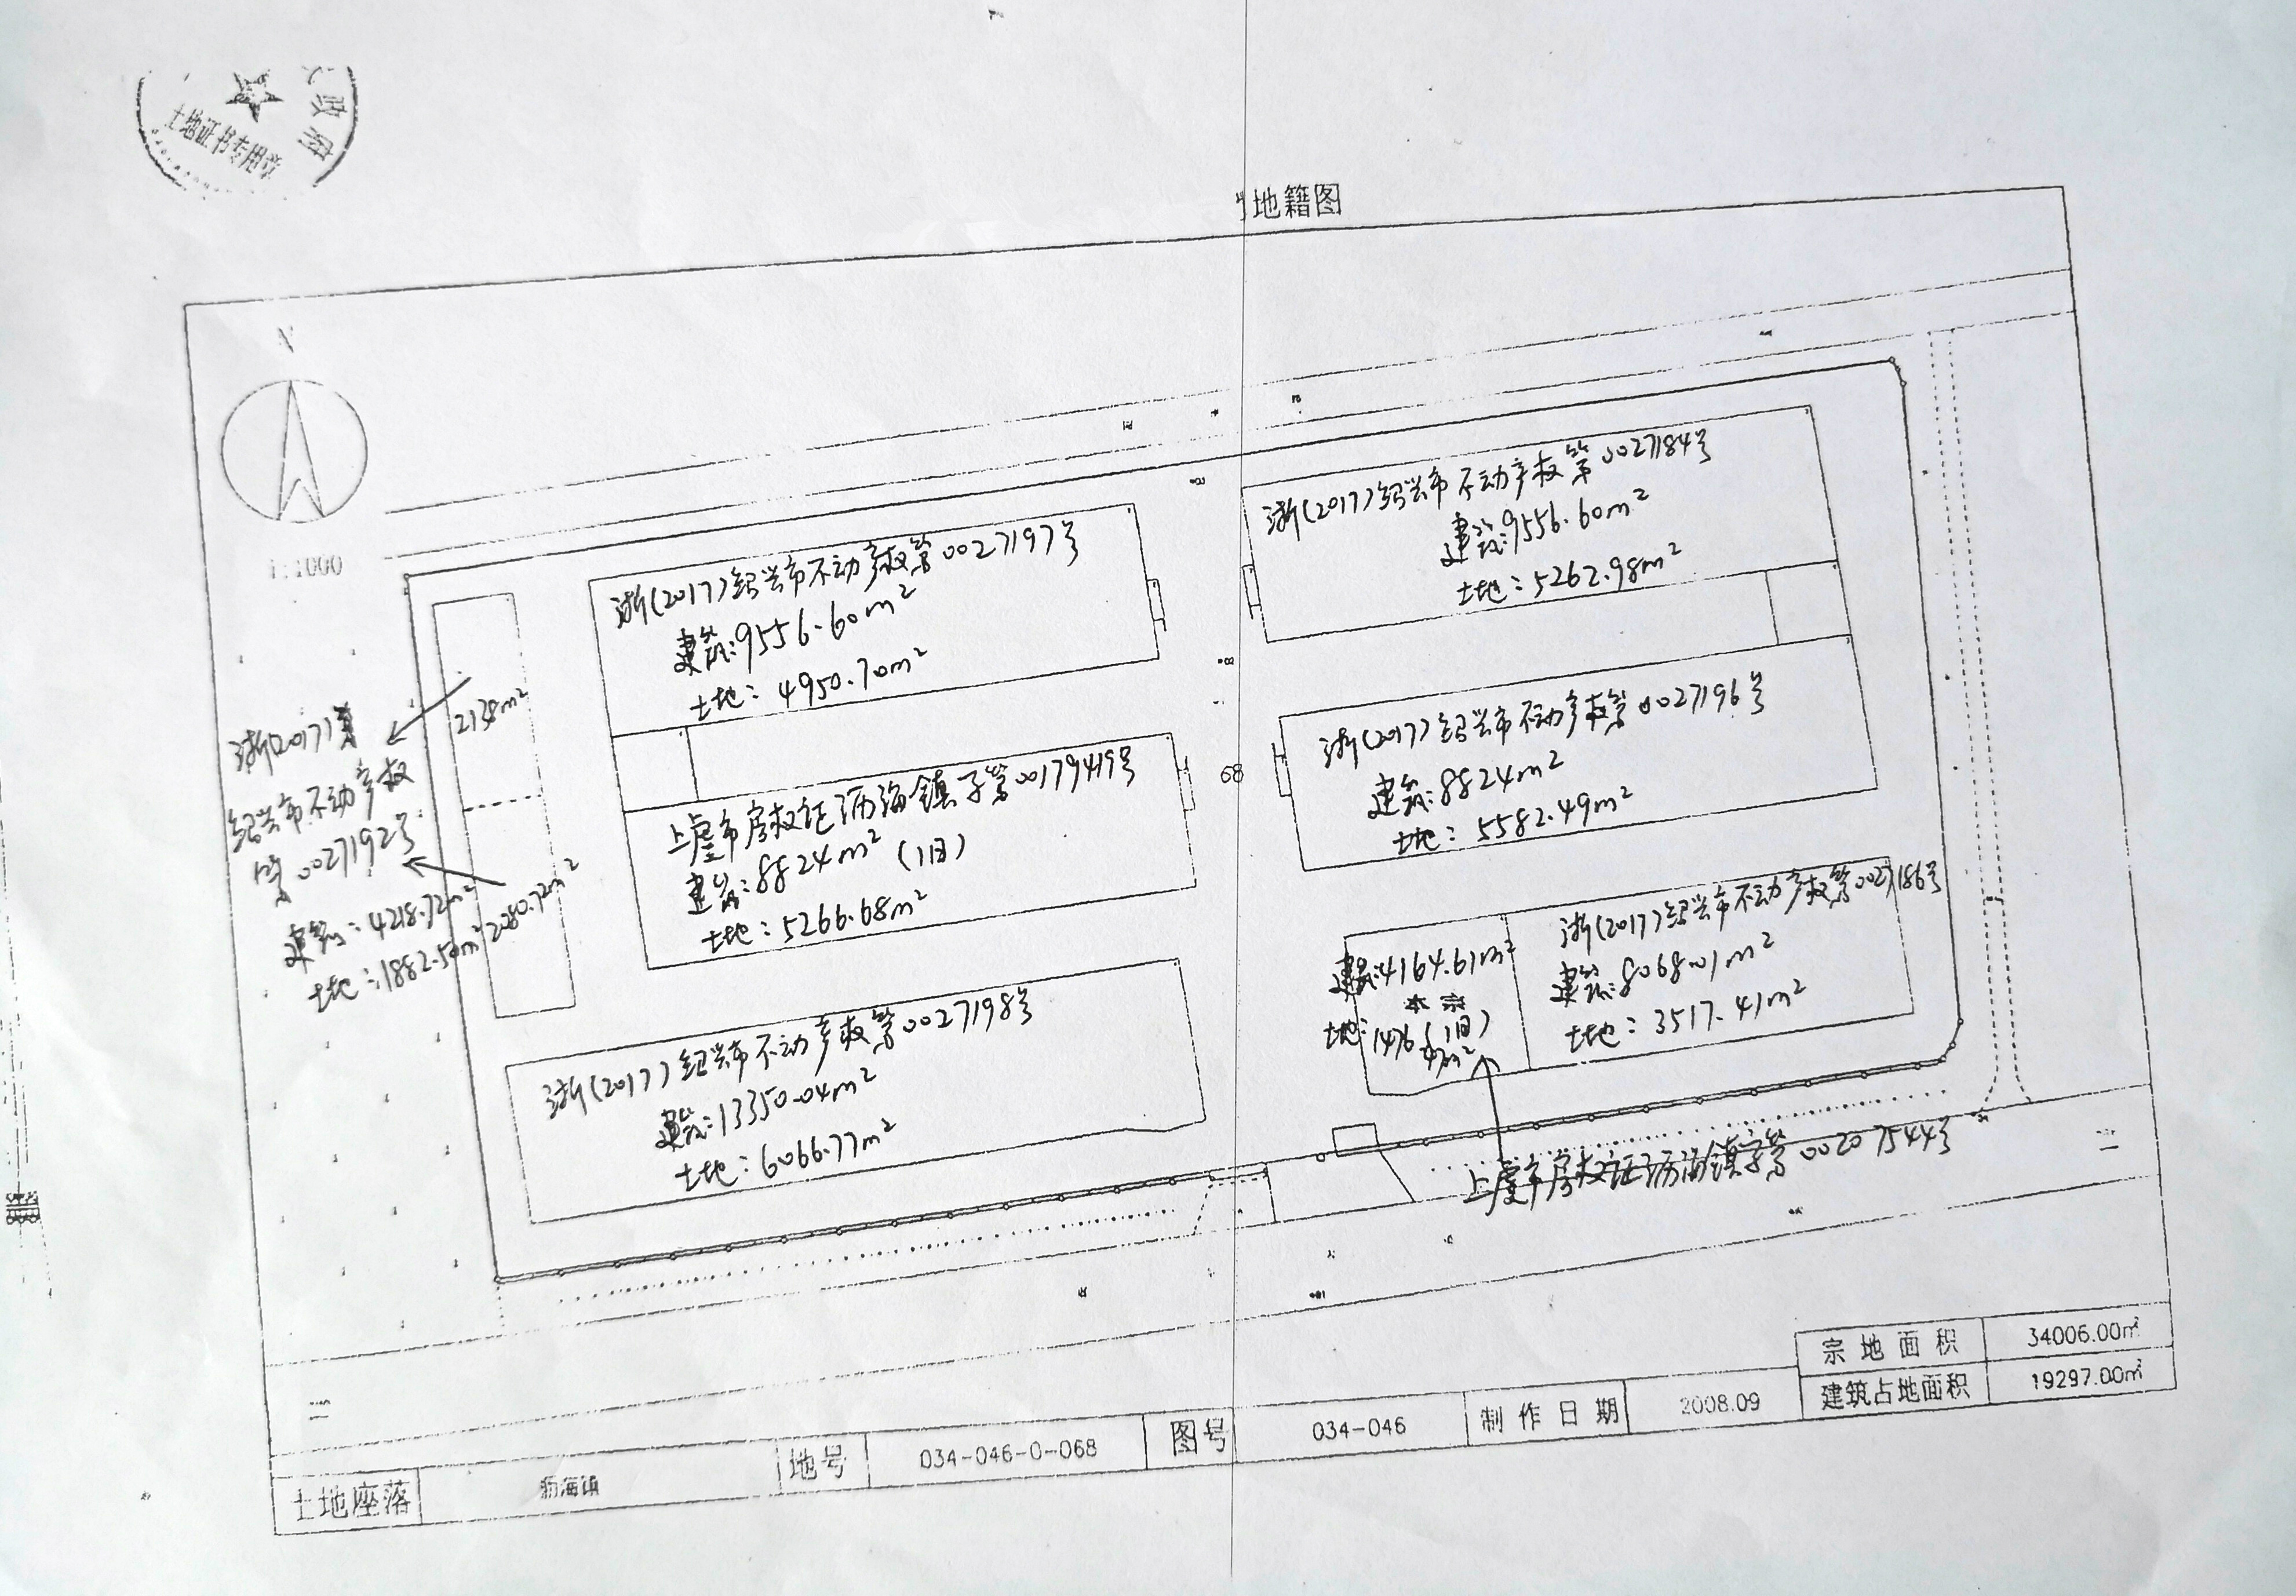 土地证书专用章
地籍图
N
1:1000
浙(2017)绍兴市不动产权第0027184号
建筑:9556.60m²
土地:5262.98m²
浙(2017)绍兴市不动产权第0027197号
建筑:9556.60m²
土地:4950.70m²
2138m²
浙(2017)
绍兴市不动产权
第0027192号
建筑:4218.72m²
土地:1882.50m²
2080.72m²
上虞市房权证沥海镇字第00179419号
建筑:8824m² (旧)
土地:5266.68m²
68
浙(2017)绍兴市不动产权第0027196号
建筑:8824m²
土地:5582.49m²
浙(2017)绍兴市不动产权第0027186号
建筑:8068.01m²
土地:3517.41m²
建筑:4164.61m²
(旧)
土地:1476
浙(2017)绍兴市不动产权第0027198号
建筑:13350.04m²
土地:6066.77m²
上虞市房权证沥海镇字第00207544号
宗地面积 34006.00㎡
建筑占地面积 19297.00㎡
土地座落 沥海镇 地号 034-046-0-068 图号 034-046 制作日期 2008.09